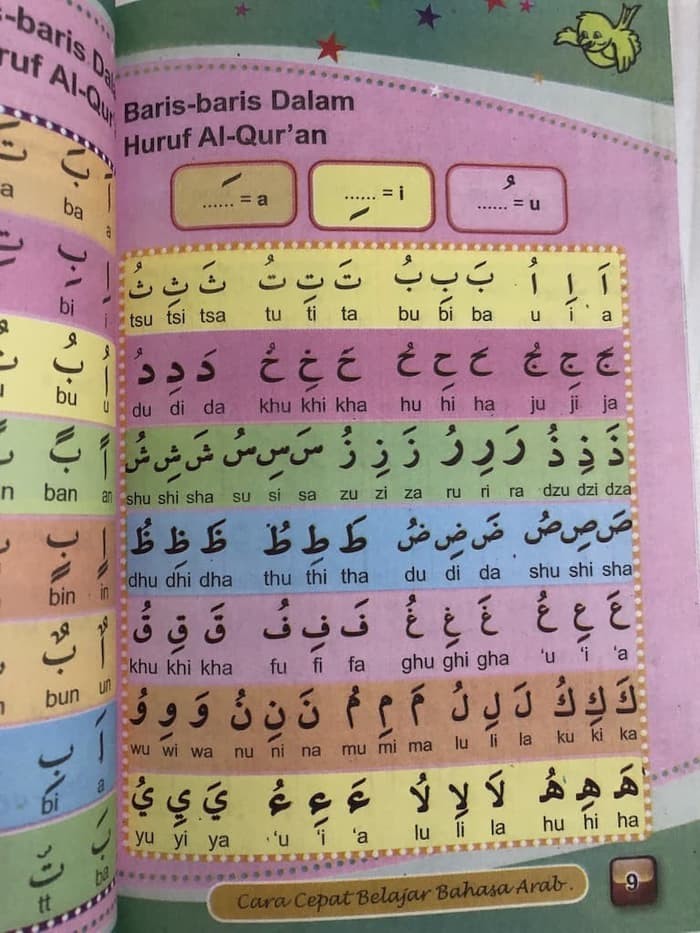 -baris
ruf
بَ اَ
ba a
بِ اِ
bi i
بُ اُ
bu u
بً اً
ban an
بٍ اٍ
bin in
بٌ اٌ
bun un
bi a
tt ba
Baris-baris Dalam
Huruf Al-Qur'an
...... = a
...... = i
...... = u
اَ اِ اُ بَ بِ بُ تَ تِ تُ ثَ ثِ ثُ
tsu tsi tsa tu ti ta bu bi ba u i a
جَ جِ جُ حَ حِ حُ خَ خِ خُ دَ دِ دُ
du di da khu khi kha hu hi ha ju ji ja
ذَ ذِ ذُ رَ رِ رُ زَ زِ زُ سَ سِ سُ شَ شِ شُ
shu shi sha su si sa zu zi za ru ri ra dzu dzi dza
صَ صِ صُ ضَ ضِ ضُ طَ طِ طُ ظَ ظِ ظُ
dhu dhi dha thu thi tha du di da shu shi sha
عَ عِ عُ غَ غِ غُ فَ فِ فُ قَ قِ قُ
khu khi kha fu fi fa ghu ghi gha 'u 'i 'a
كَ كِ كُ لَ لِ لُ مَ مِ مُ نَ نِ نُ وَ وِ وُ
wu wi wa nu ni na mu mi ma lu li la ku ki ka
هَ هِ هُ لاَ لاِ لاُ ءَ ءِ ءُ يَ يِ يُ
yu yi ya 'u 'i 'a lu li la hu hi ha
Cara Cepat Belajar Bahasa Arab.
9